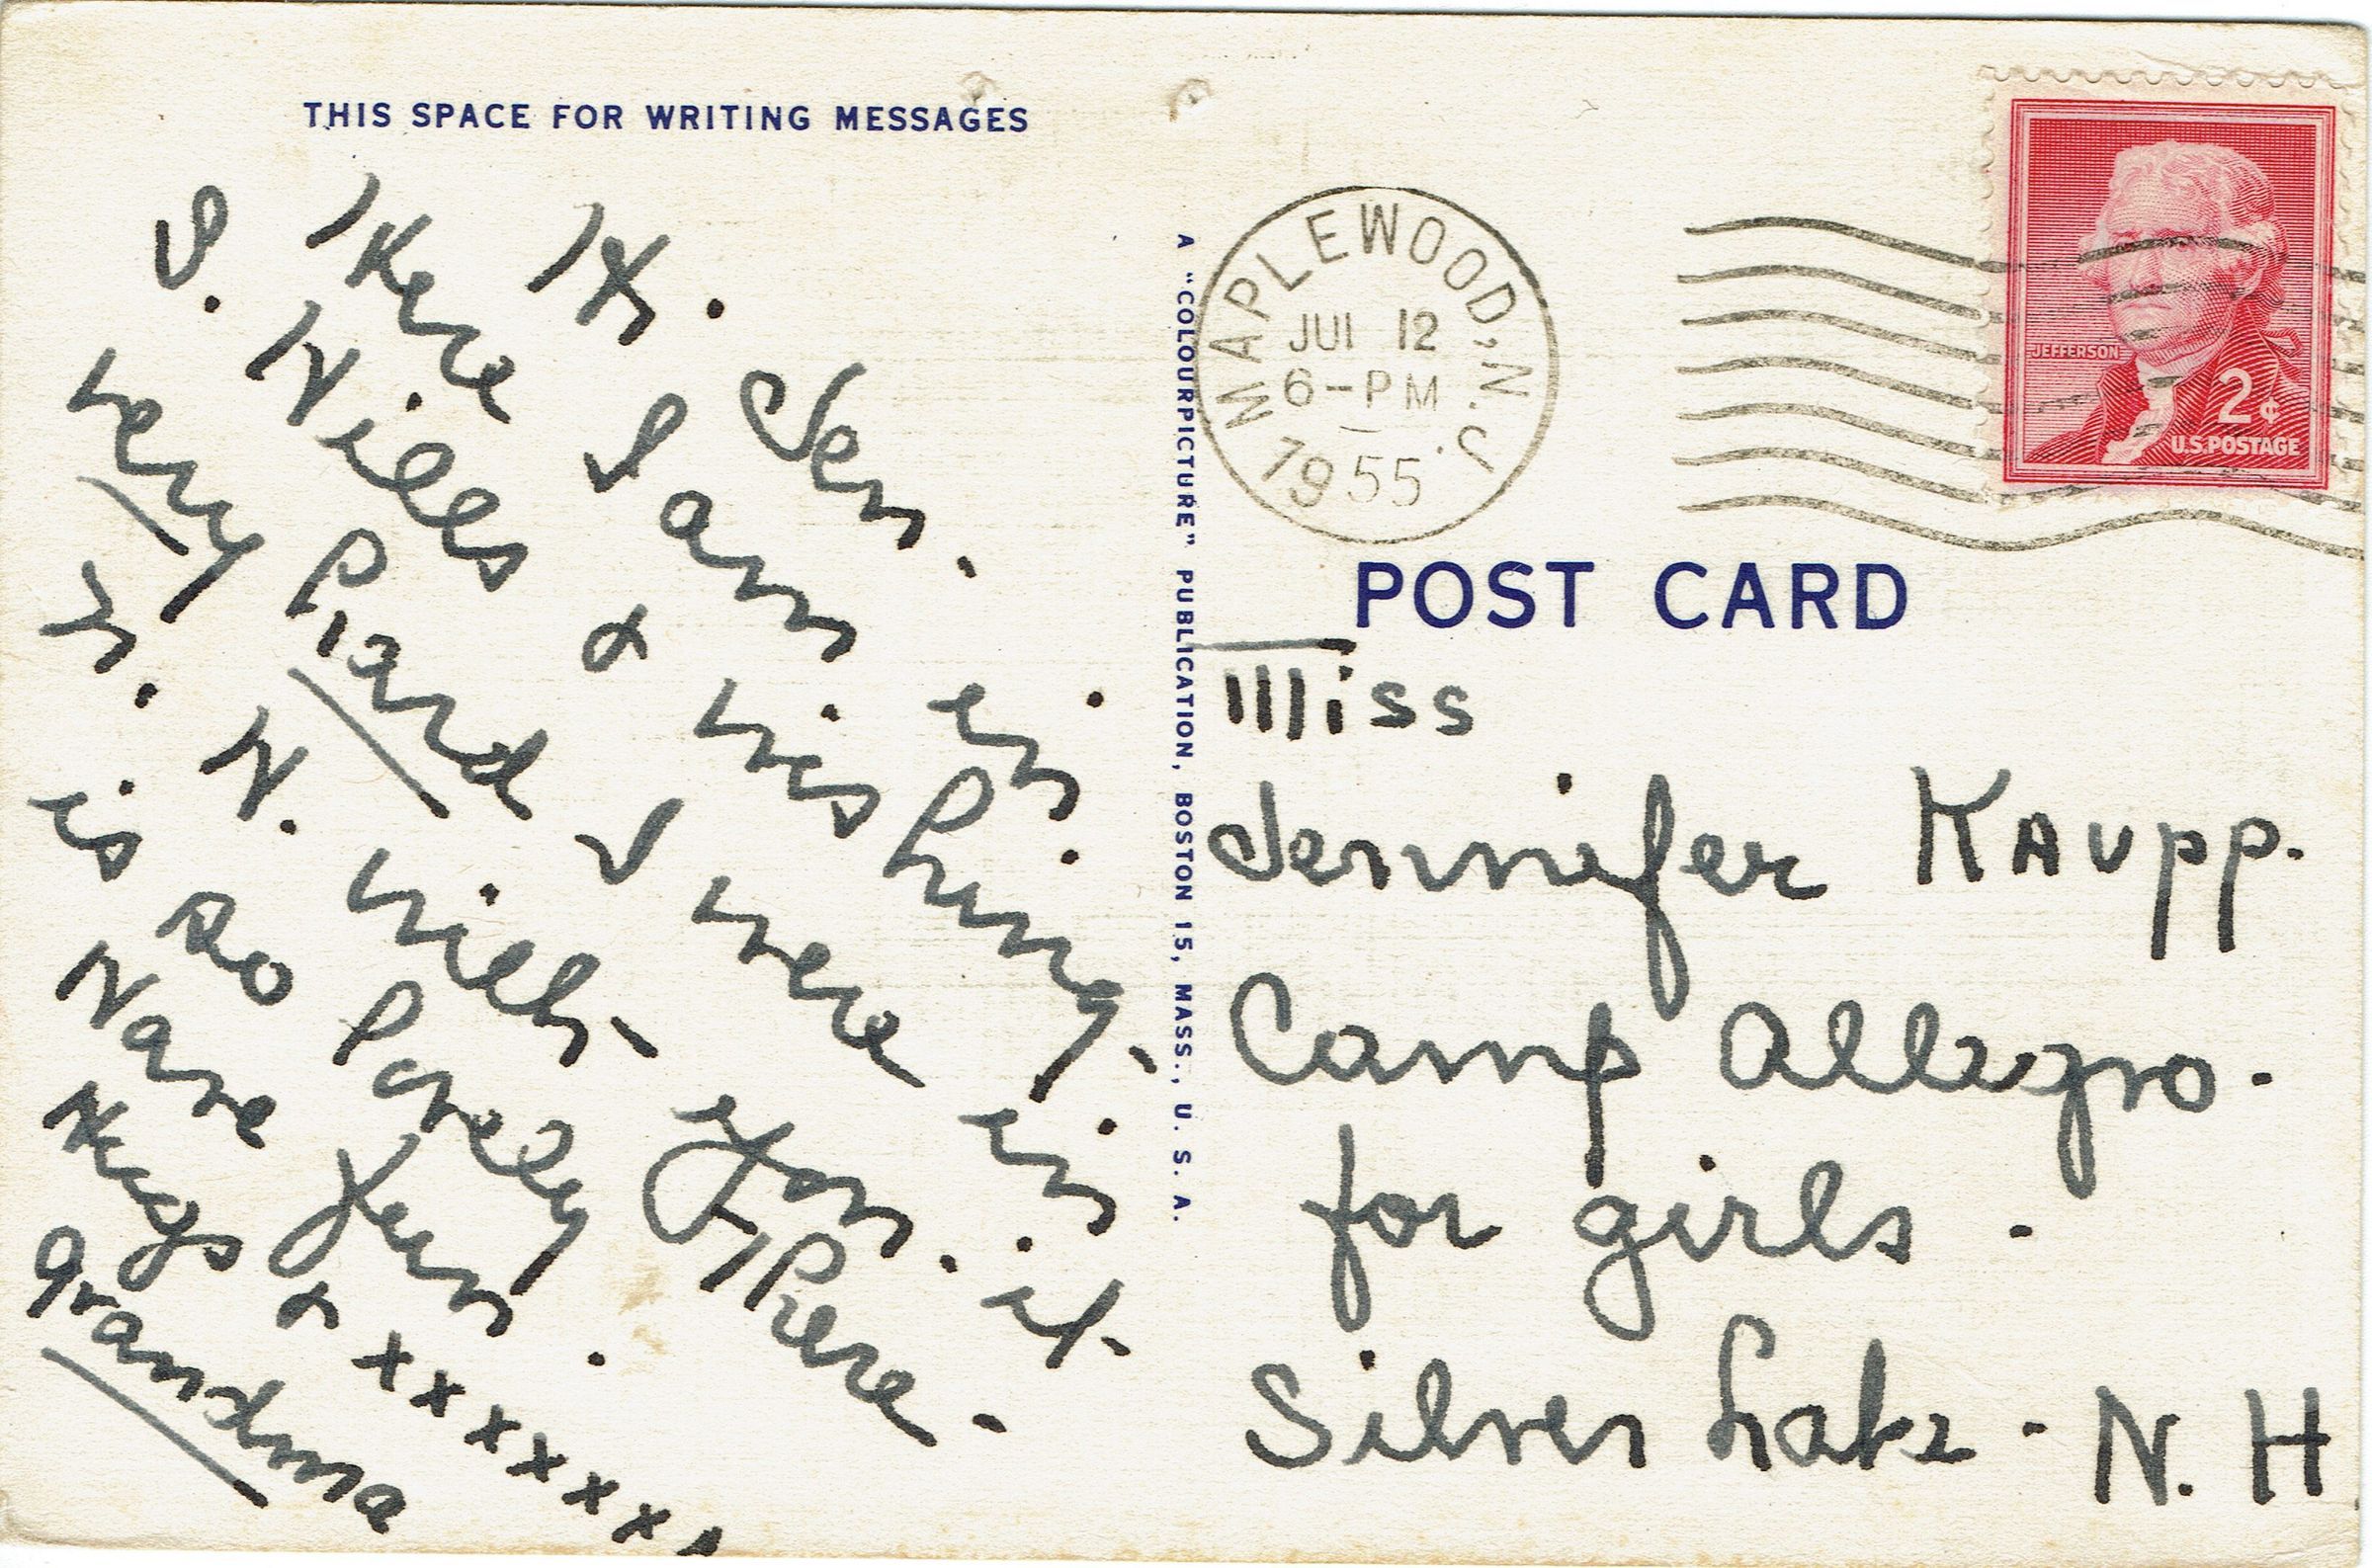 THIS SPACE FOR WRITING MESSAGES
Hi. Jen.
Here I am in.
S. Hills & wishing-
very hard I were in.
N. H. with- you. it-
is so lovely There-
Have fun.
Hugs & xxxxxxx
grandma
A "COLOURPICTURE" PUBLICATION, BOSTON 15, MASS., U. S. A.
MAPLEWOOD, N.J.
JUL 12
6-PM
1955
JEFFERSON
2¢
U.S. POSTAGE
POST CARD
Miss
Jennifer Kaupp.
Camp Allegro.
for girls.
Silver Lake. N. H.